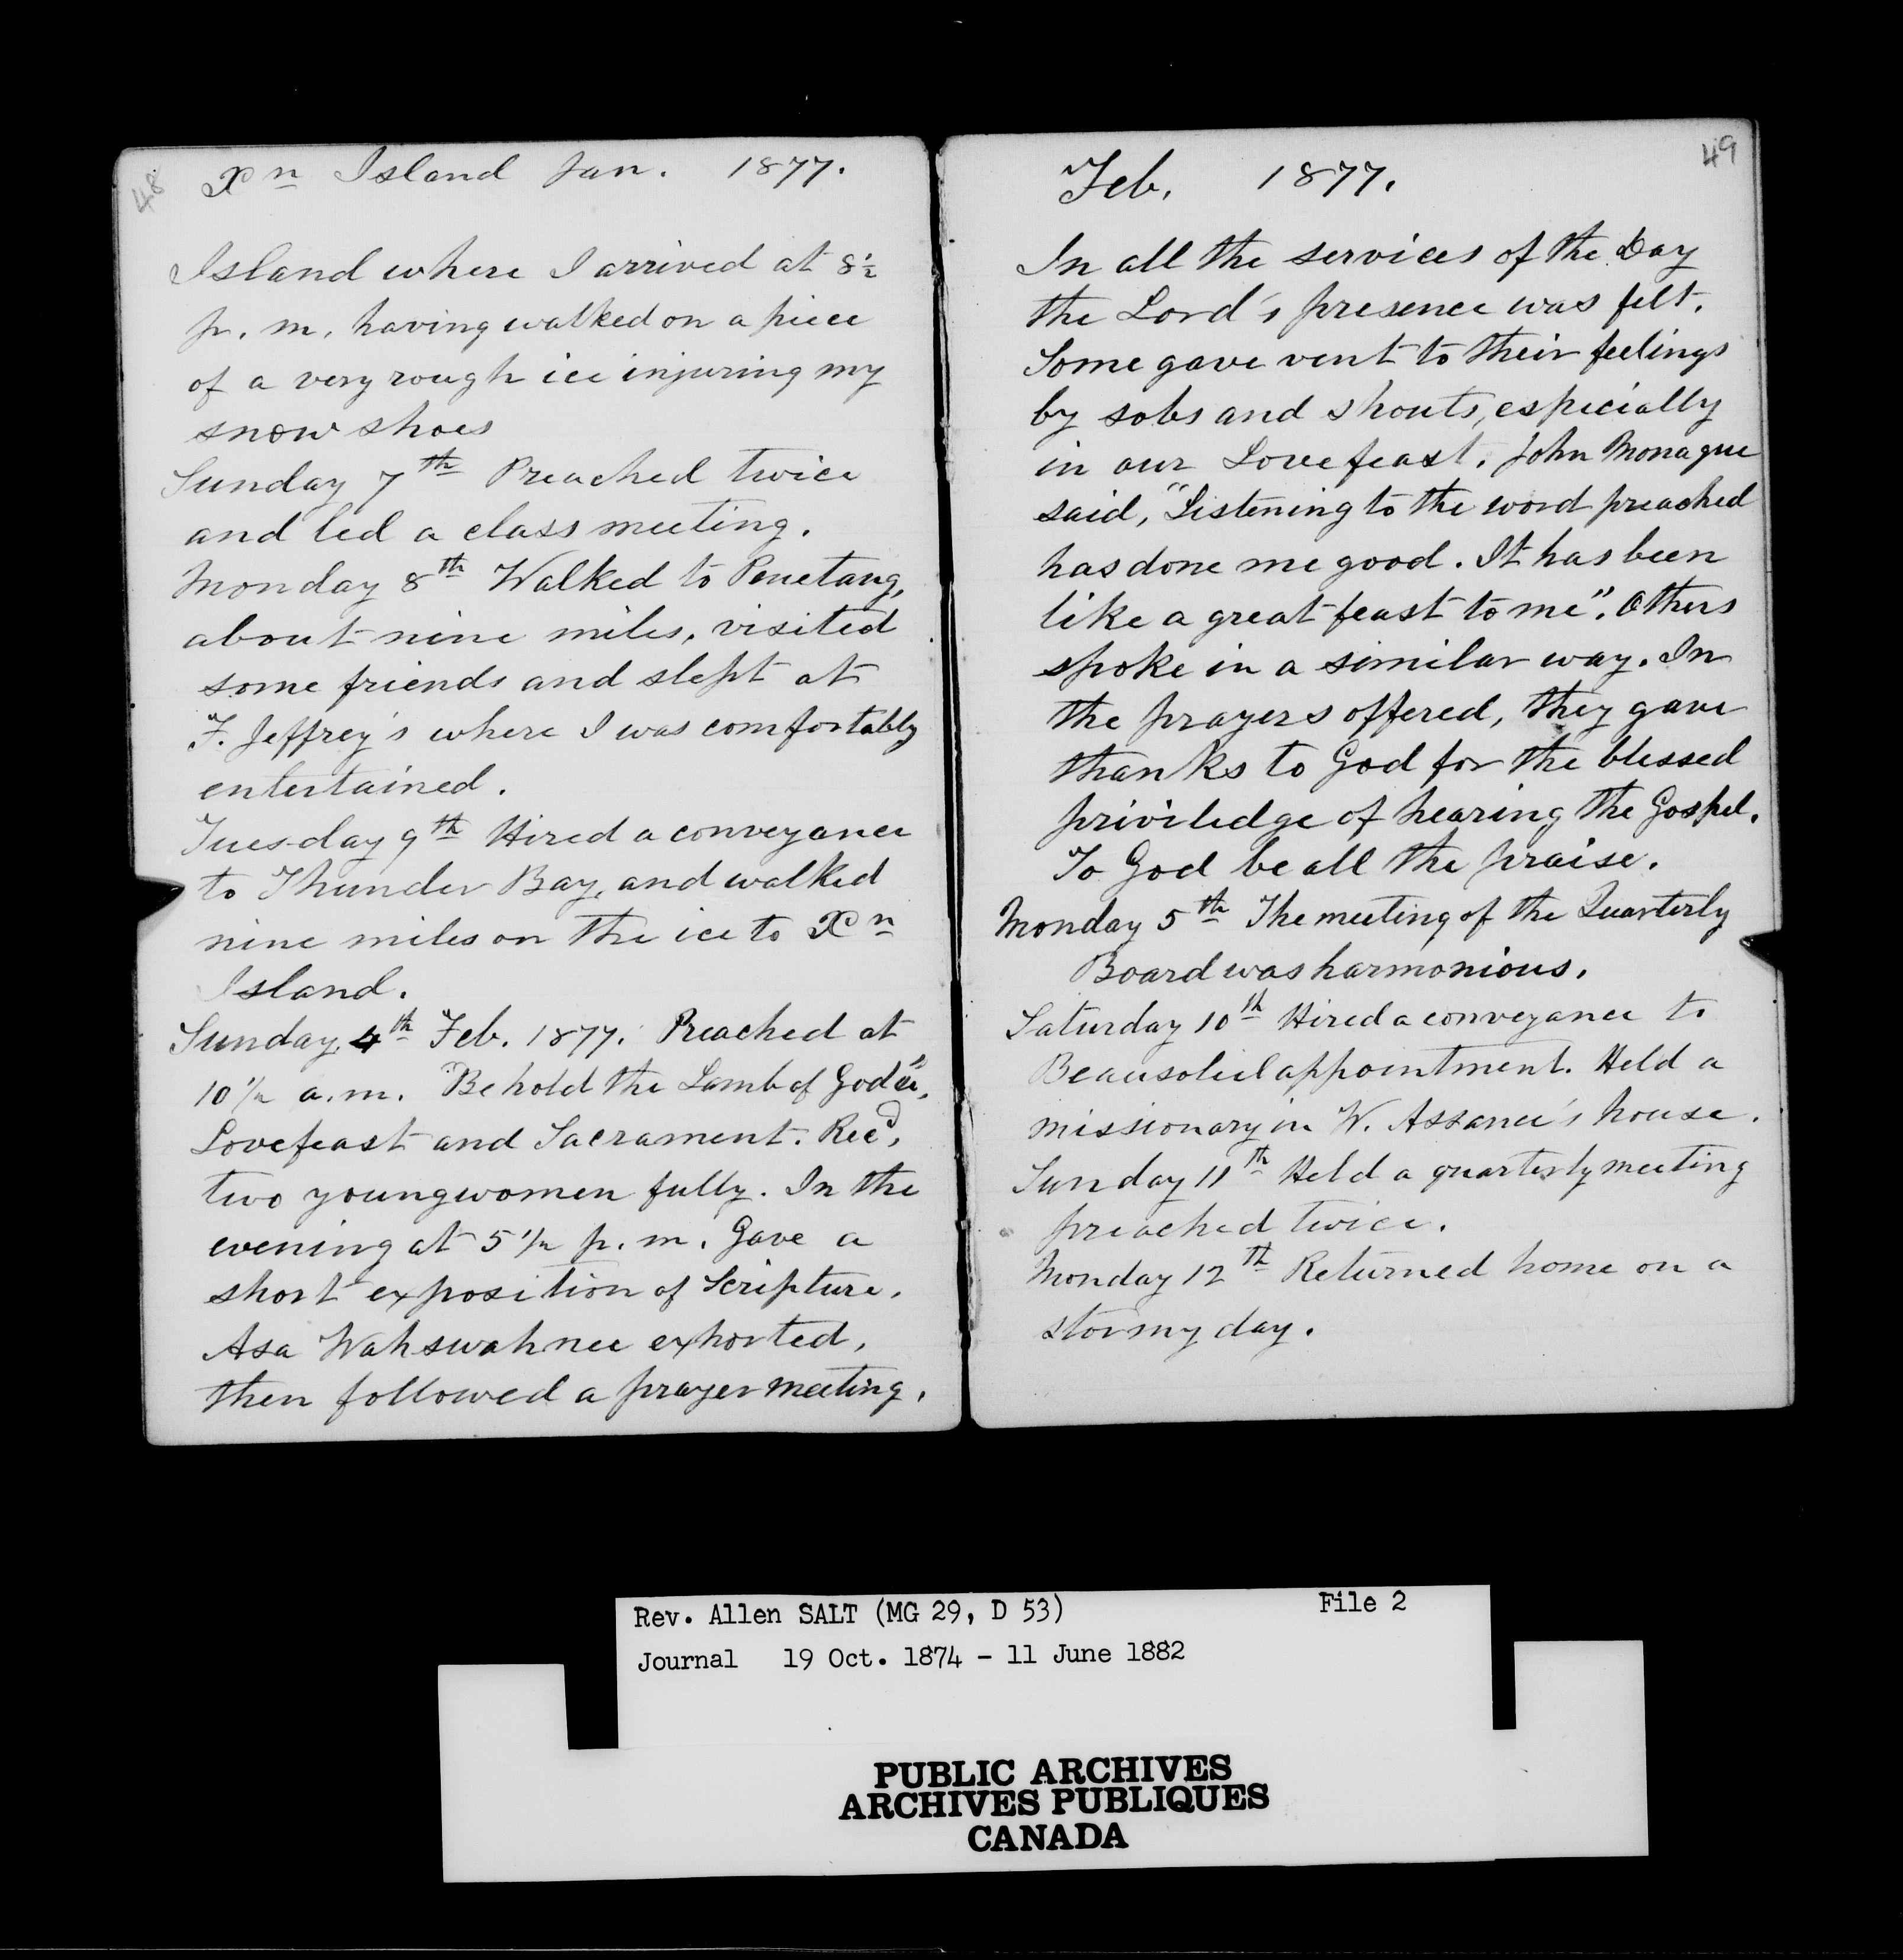 48
Xn Island Jan. 1877.
Island where I arrived at 8½
p. m. having walked on a piece
of a very rough ice injuring my
snow shoes
Sunday 7th Preached twice
and led a class meeting.
Monday 8th Walked to Penetang,
about nine miles, visited
some friends and slept at
F. Jeffrey's where I was comfortably
entertained.
Tuesday 9th Hired a conveyance
to Thunder Bay, and walked
nine miles on the ice to Xn
Island.
Sunday 4th Feb. 1877. Preached at
10½ a.m. "Behold the Lamb of God"&c,
Lovefeast and Sacrament. Recd,
two young women fully. In the
evening at 5½ p. m. Gave a
short exposition of Scripture.
Asa Wahswahnee exhorted,
then followed a prayer meeting.
49
Feb. 1877.
In all the services of the Day
the Lord's presence was felt.
Some gave vent to their feelings
by sobs and shouts, especially
in our Lovefeast. John Monague
said, "Listening to the word preached
has done me good. It has been
like a great feast to me". Others
spoke in a similar way. In
the prayers offered, they gave
thanks to God for the blessed
priviledge of hearing the Gospel.
To God be all the praise.
Monday 5th The meeting of the Quarterly
Board was harmonious.
Saturday 10th Hired a conveyance to
Beausoliel appointment. Held a
missionary in W. Assance's house.
Sunday 11th Held a quarterly meeting
preached twice.
Monday 12th Returned home on a
stormy day.
Rev. Allen SALT (MG 29, D 53) File 2
Journal 19 Oct. 1874 - 11 June 1882
PUBLIC ARCHIVES
ARCHIVES PUBLIQUES
CANADA